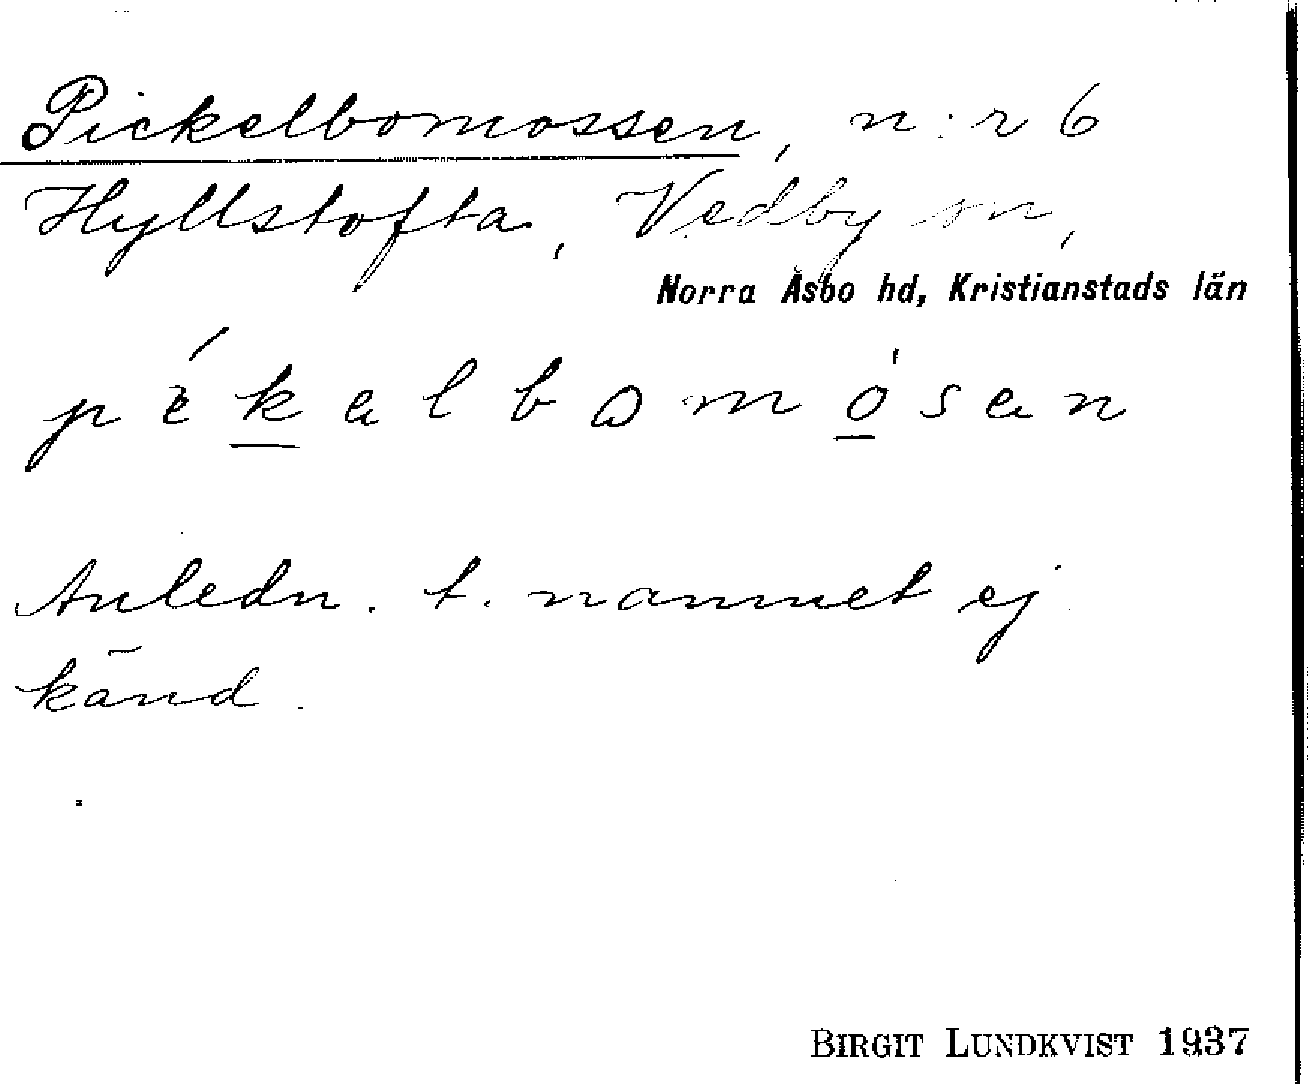 Pickelbomossen, n:r 6
Hyllstofta, Vedby sn,
Norra Åsbo hd, Kristianstads län
pékalbomósen
Anledn. t. namnet ej
känd.
BIRGIT LUNDKVIST 1937